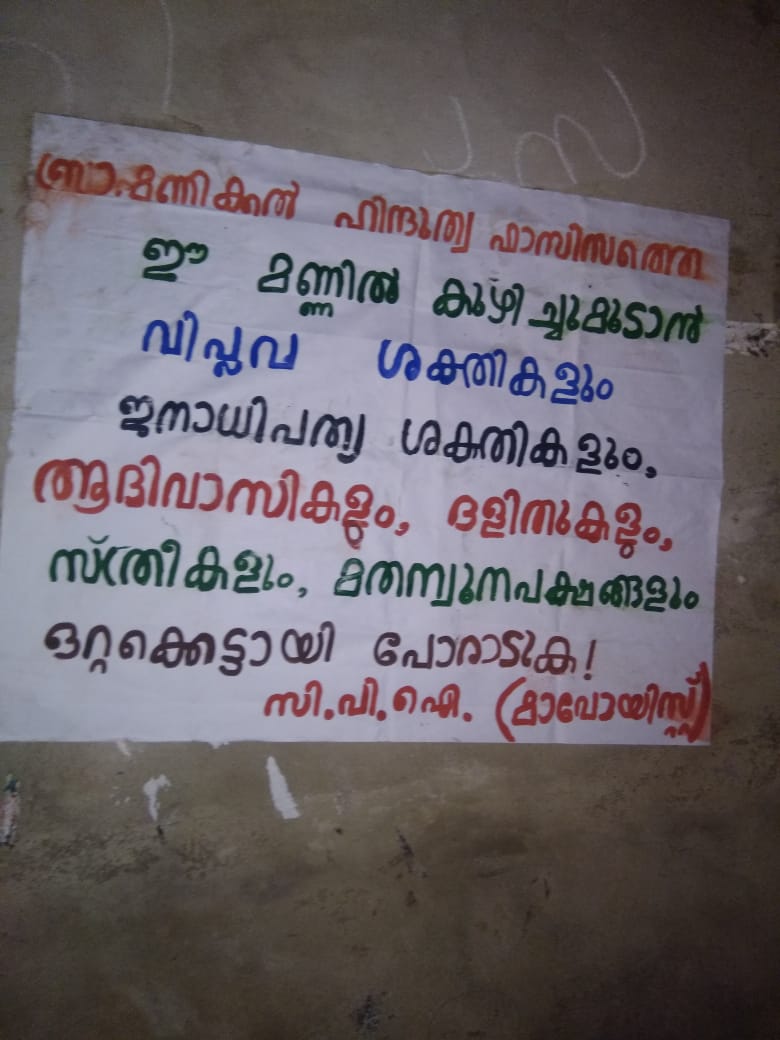 ബ്രാഹ്മണിക്കൽ ഹിന്ദുത്വ ഫാസിസത്തെ
ഈ മണ്ണിൽ കുഴിച്ചുമൂടാൻ
വിപ്ലവ ശക്തികളും
ജനാധിപത്യ ശക്തികളും,
ആദിവാസികളും, ദളിതുകളും,
സ്ത്രീകളും, മതന്യൂനപക്ഷങ്ങളും
ഒറ്റക്കെട്ടായി പോരാടുക!
സി.പി.ഐ. (മാവോയിസ്റ്റ്)